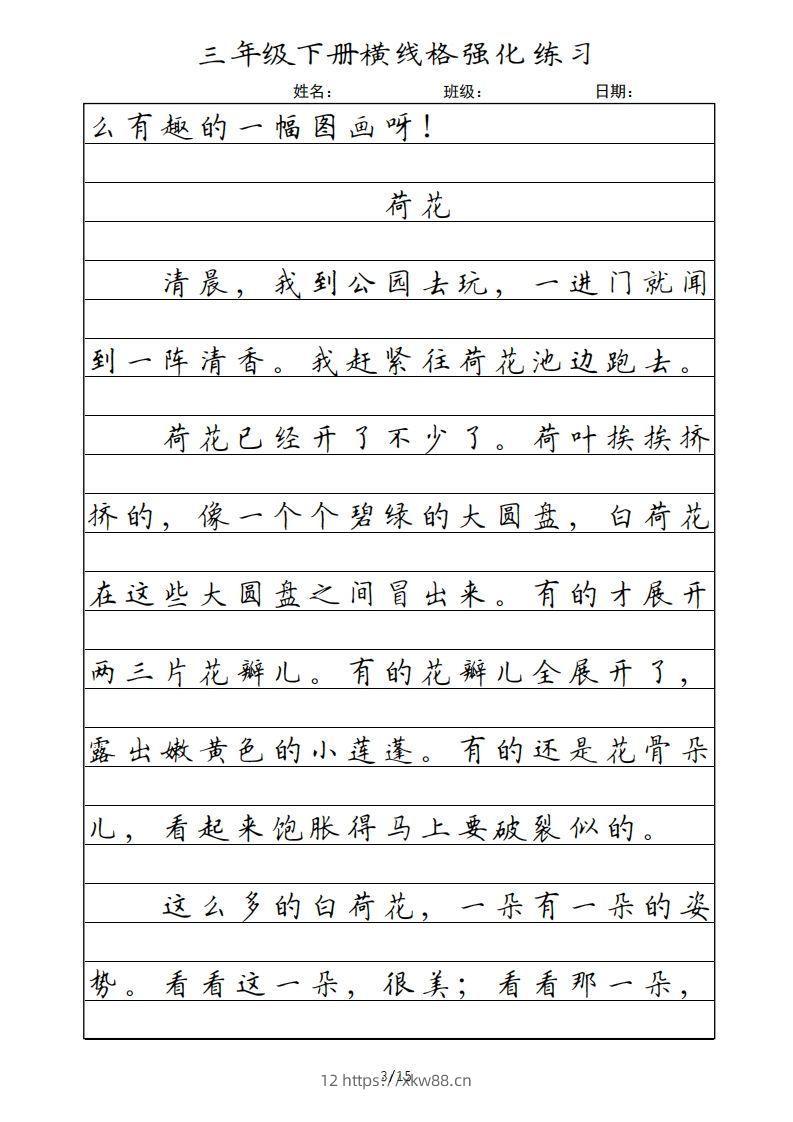 三年级下册横线格强化练习
姓名： 班级： 日期：
么有趣的一幅图画呀！
荷花
清晨，我到公园去玩，一进门就闻
到一阵清香。我赶紧往荷花池边跑去。
荷花已经开了不少了。荷叶挨挨挤
挤的，像一个个碧绿的大圆盘，白荷花
在这些大圆盘之间冒出来。有的才展开
两三片花瓣儿。有的花瓣儿全展开了，
露出嫩黄色的小莲蓬。有的还是花骨朵
儿，看起来饱胀得马上要破裂似的。
这么多的白荷花，一朵有一朵的姿
势。看看这一朵，很美；看看那一朵，
3/15
12 https://xkw88.cn